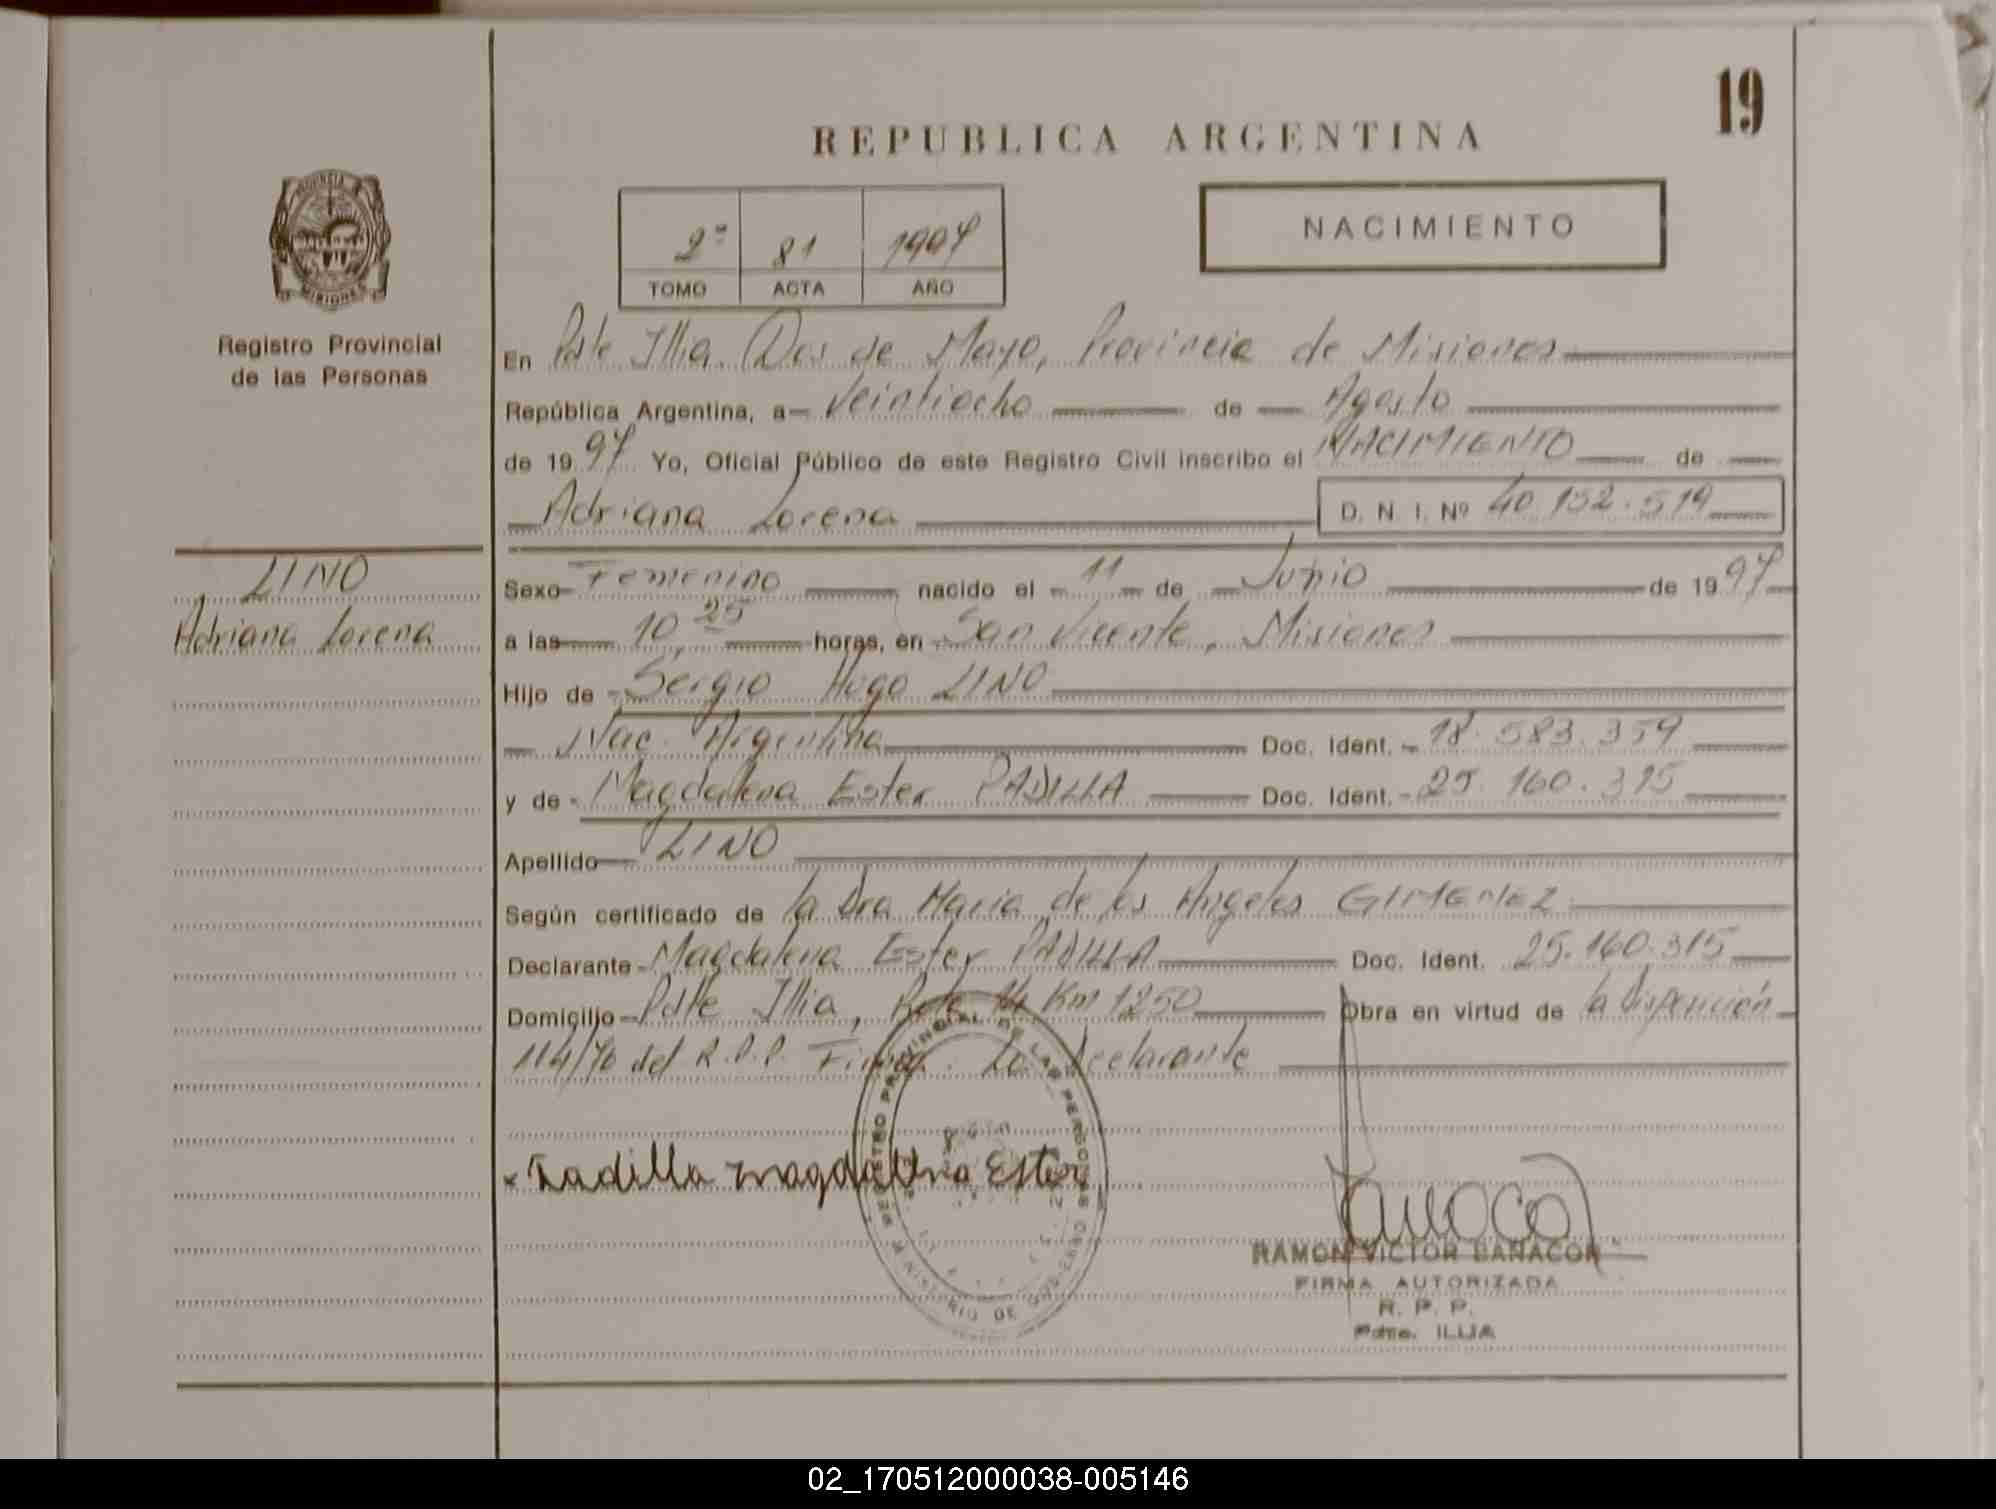 19
REPUBLICA ARGENTINA
NACIMIENTO
2º 81 1997
TOMO ACTA AÑO
PROVINCIA
MISIONES
Registro Provincial
de las Personas
En Pdte Illia. Dos de Mayo, Provincia de Misiones
República Argentina, a Veintiocho de Agosto
de 1997 Yo, Oficial Público de este Registro Civil inscribo el NACIMIENTO de
Adriana Lorena D. N. I. Nº 40.152.519
LINO
Adriana Lorena
Sexo Femenino nacido el 11 de Junio de 1997
a las 10,25 horas, en San Vicente, Misiones
Hijo de Sergio Hugo LINO
Nac. Argentina Doc. Ident. 18.583.359
y de Magdalena Ester PADILLA Doc. Ident. 25.160.315
Apellido LINO
Según certificado de la Dra Maria de los Angeles GIMENEZ
Declarante Magdalena Ester PADILLA Doc. Ident. 25.160.315
Domicilio Pdte Illia, Rta 14 Km 1250 Obra en virtud de la Disposición
114/70 del R.P.P. Firma: La declarante
REGISTRO PROVINCIAL DE LAS PERSONAS
MINISTERIO DE GOBIERNO
Padilla Magdalena Ester
RAMON VICTOR BANACOR
FIRMA AUTORIZADA
R. P. P.
Pdte. ILLIA
02_170512000038-005146